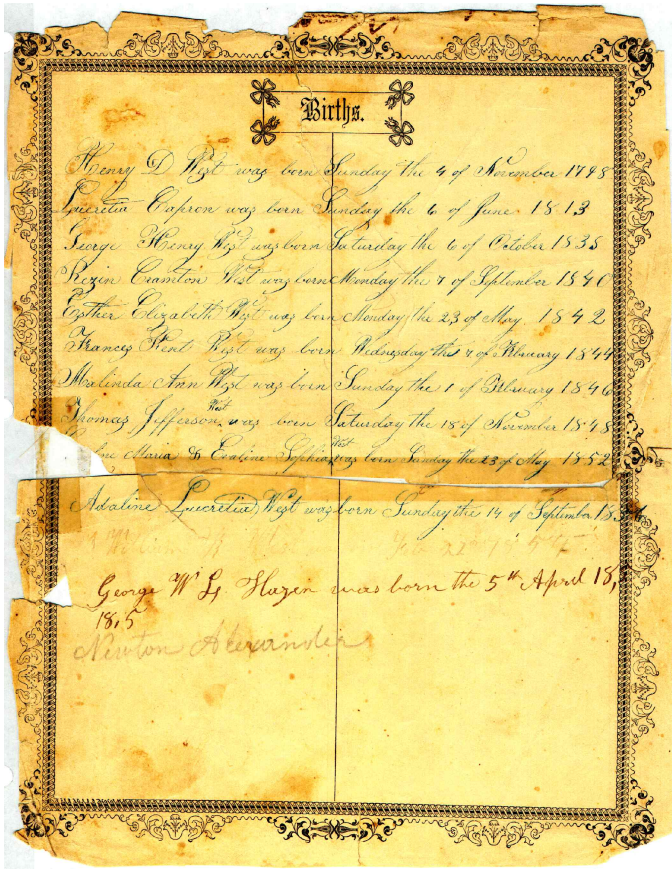 Births.
Henry D West was born Sunday the 4 of November 1798
Lucretia Capron was born Sunday the 6 of June 1813
George Henry West was born Saturday the 6 of October 1835
Rezin Cramton West was born Monday the 7 of September 1840
Esther Elizabeth West was born Monday the 23 of May 1842
Frances Kent West was born Wednesday the 7 of February 1844
Malinda Ann West was born Sunday the 1 of February 1846
Thomas Jefferson West was born Saturday the 18 of November 1848
Maria & Evaline Sophia West was born Sunday the 23 of May 1852
Adaline Lucretia West was born Sunday the 14 of September
George W L Hazen was born the 5th April 18,
18,5
Newton Alexander